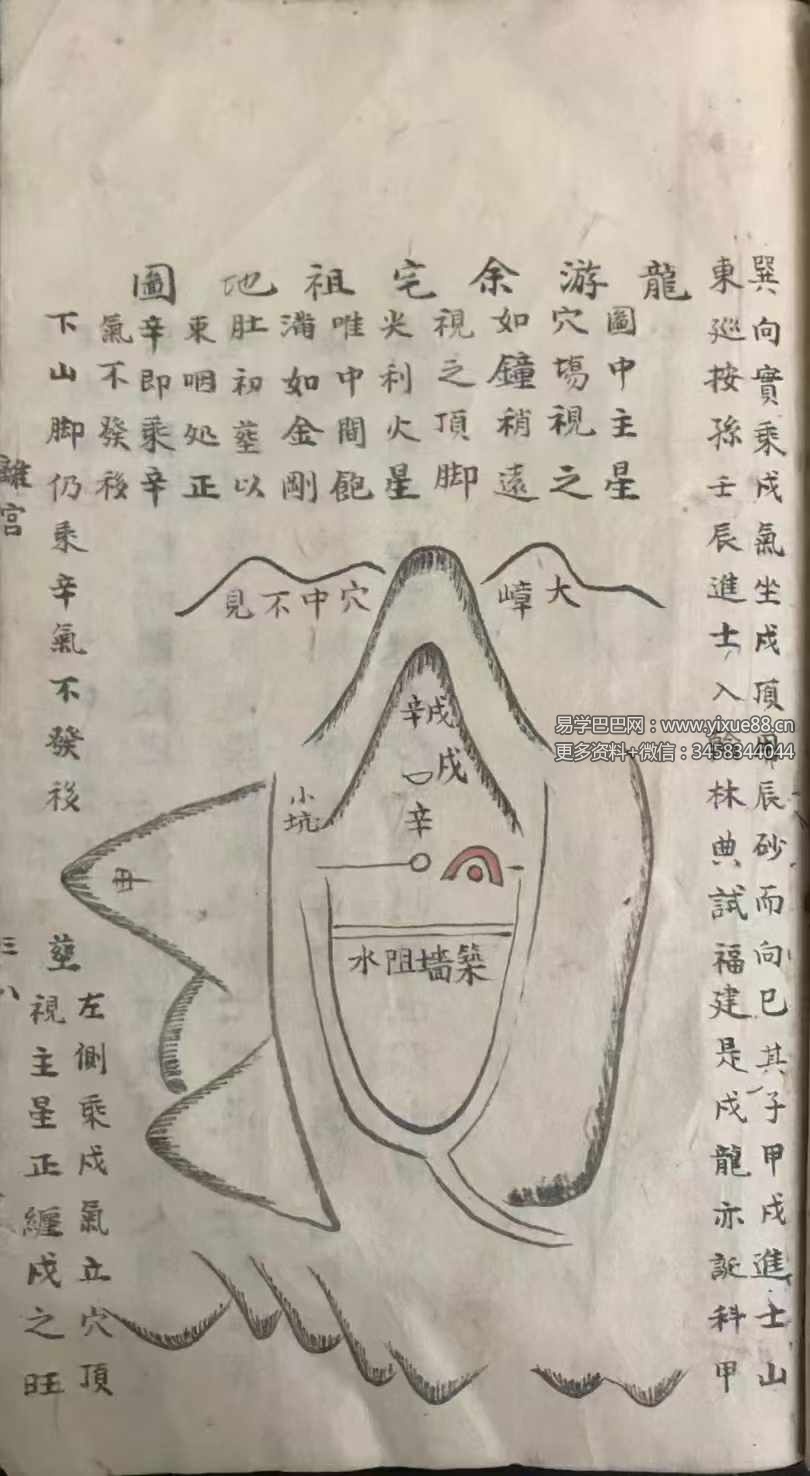 巽向實乘戌氣坐戌頂
辰砂而向巳其子甲戌進士山
東巡按孫壬辰進士入
林典試福建是戌龍亦誕科甲
龍游余宅祖地圖
圖中主星
穴塲視之
如鐘稍遠
視之頂脚
尖利火星
唯中間飽
滿如金剛
肚初塟以
東咽処正
辛即乘辛
氣不發移
下山脚仍乘辛氣不發後
大嶂
穴中不見
辛戌
戌
辛
小坑
築墙阻水
塟
左側乘戌氣立穴頂
視主星正纏戌之旺
離宮
三八
易学巴巴网：www.yixue88.cn
更多资料+微信：3458344044